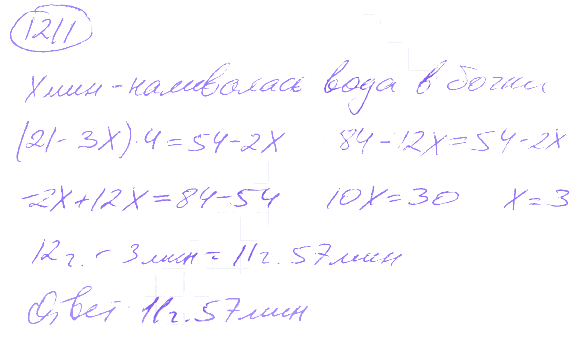 1211
x мин - наливалась вода в бочки
(21 - 3x) · 4 = 54 - 2x 84 - 12x = 54 - 2x
-2x + 12x = 84 - 54 10x = 30 x = 3
12 г. - 3 мин = 11 г. 57 мин
Ответ 11 г. 57 мин